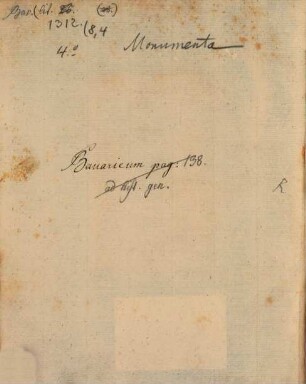 Bav. (
1312. (8,4
4.° Monumenta
Bavaricum pag. 138.
ad hist. gen.